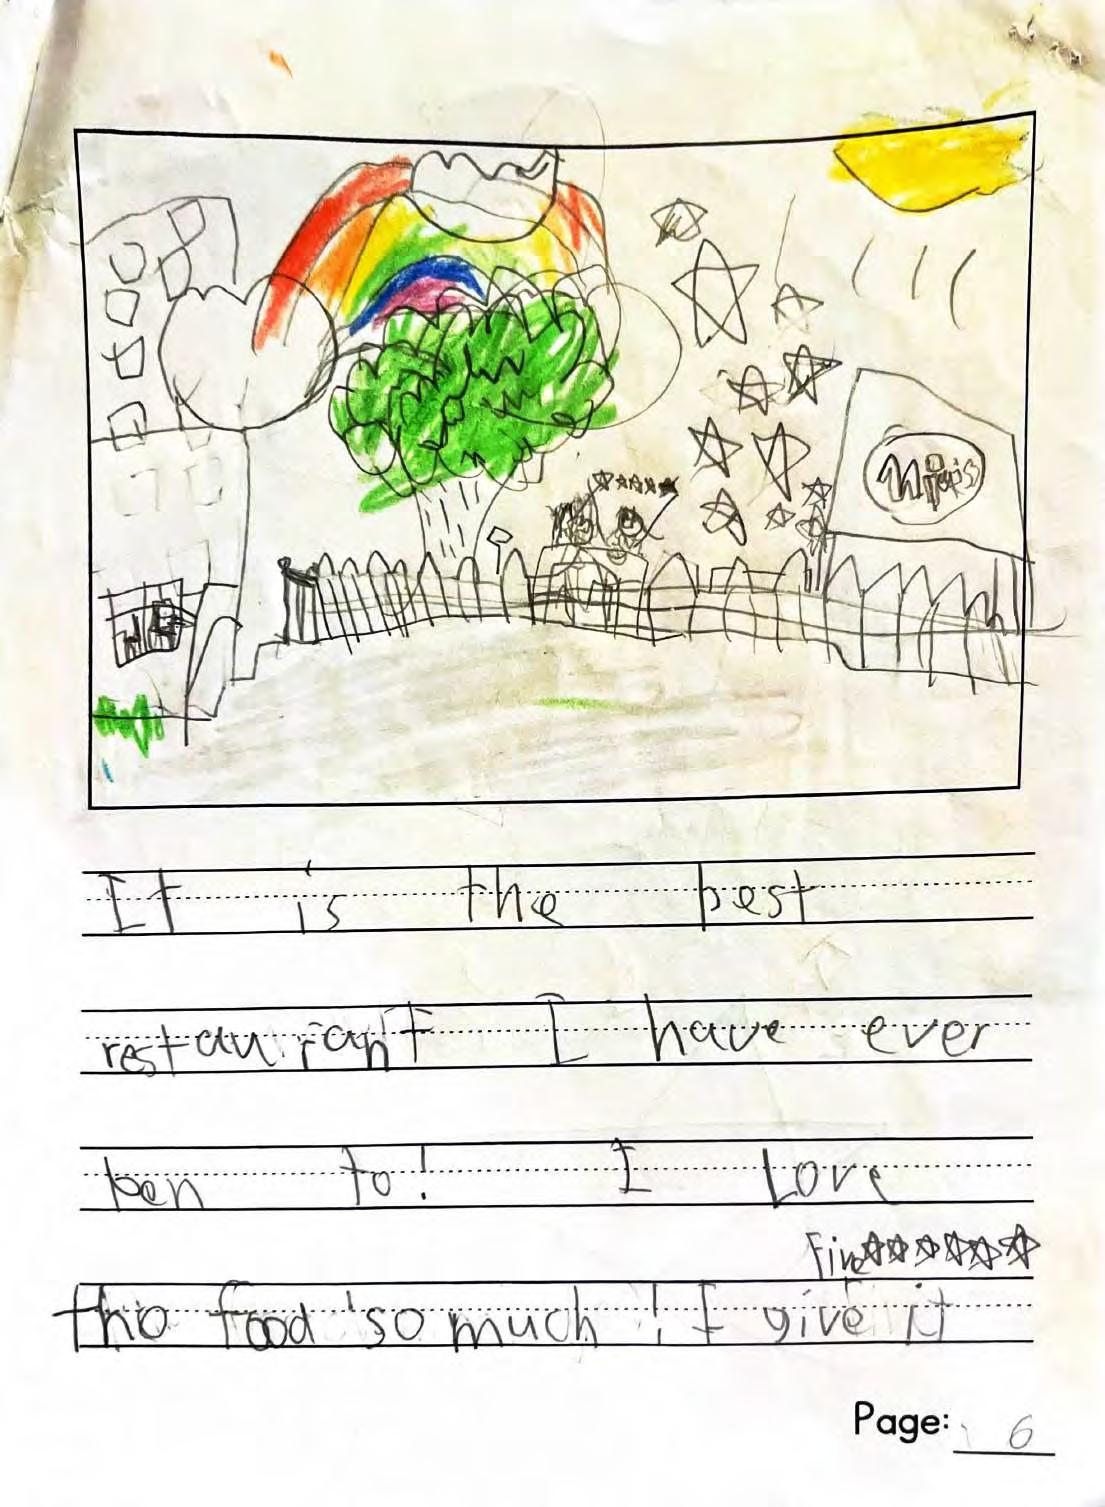 It is the best
restaurant I have ever
ben to! I Love
Five ☆☆☆☆☆☆
the food so much! I give it
Page: 6